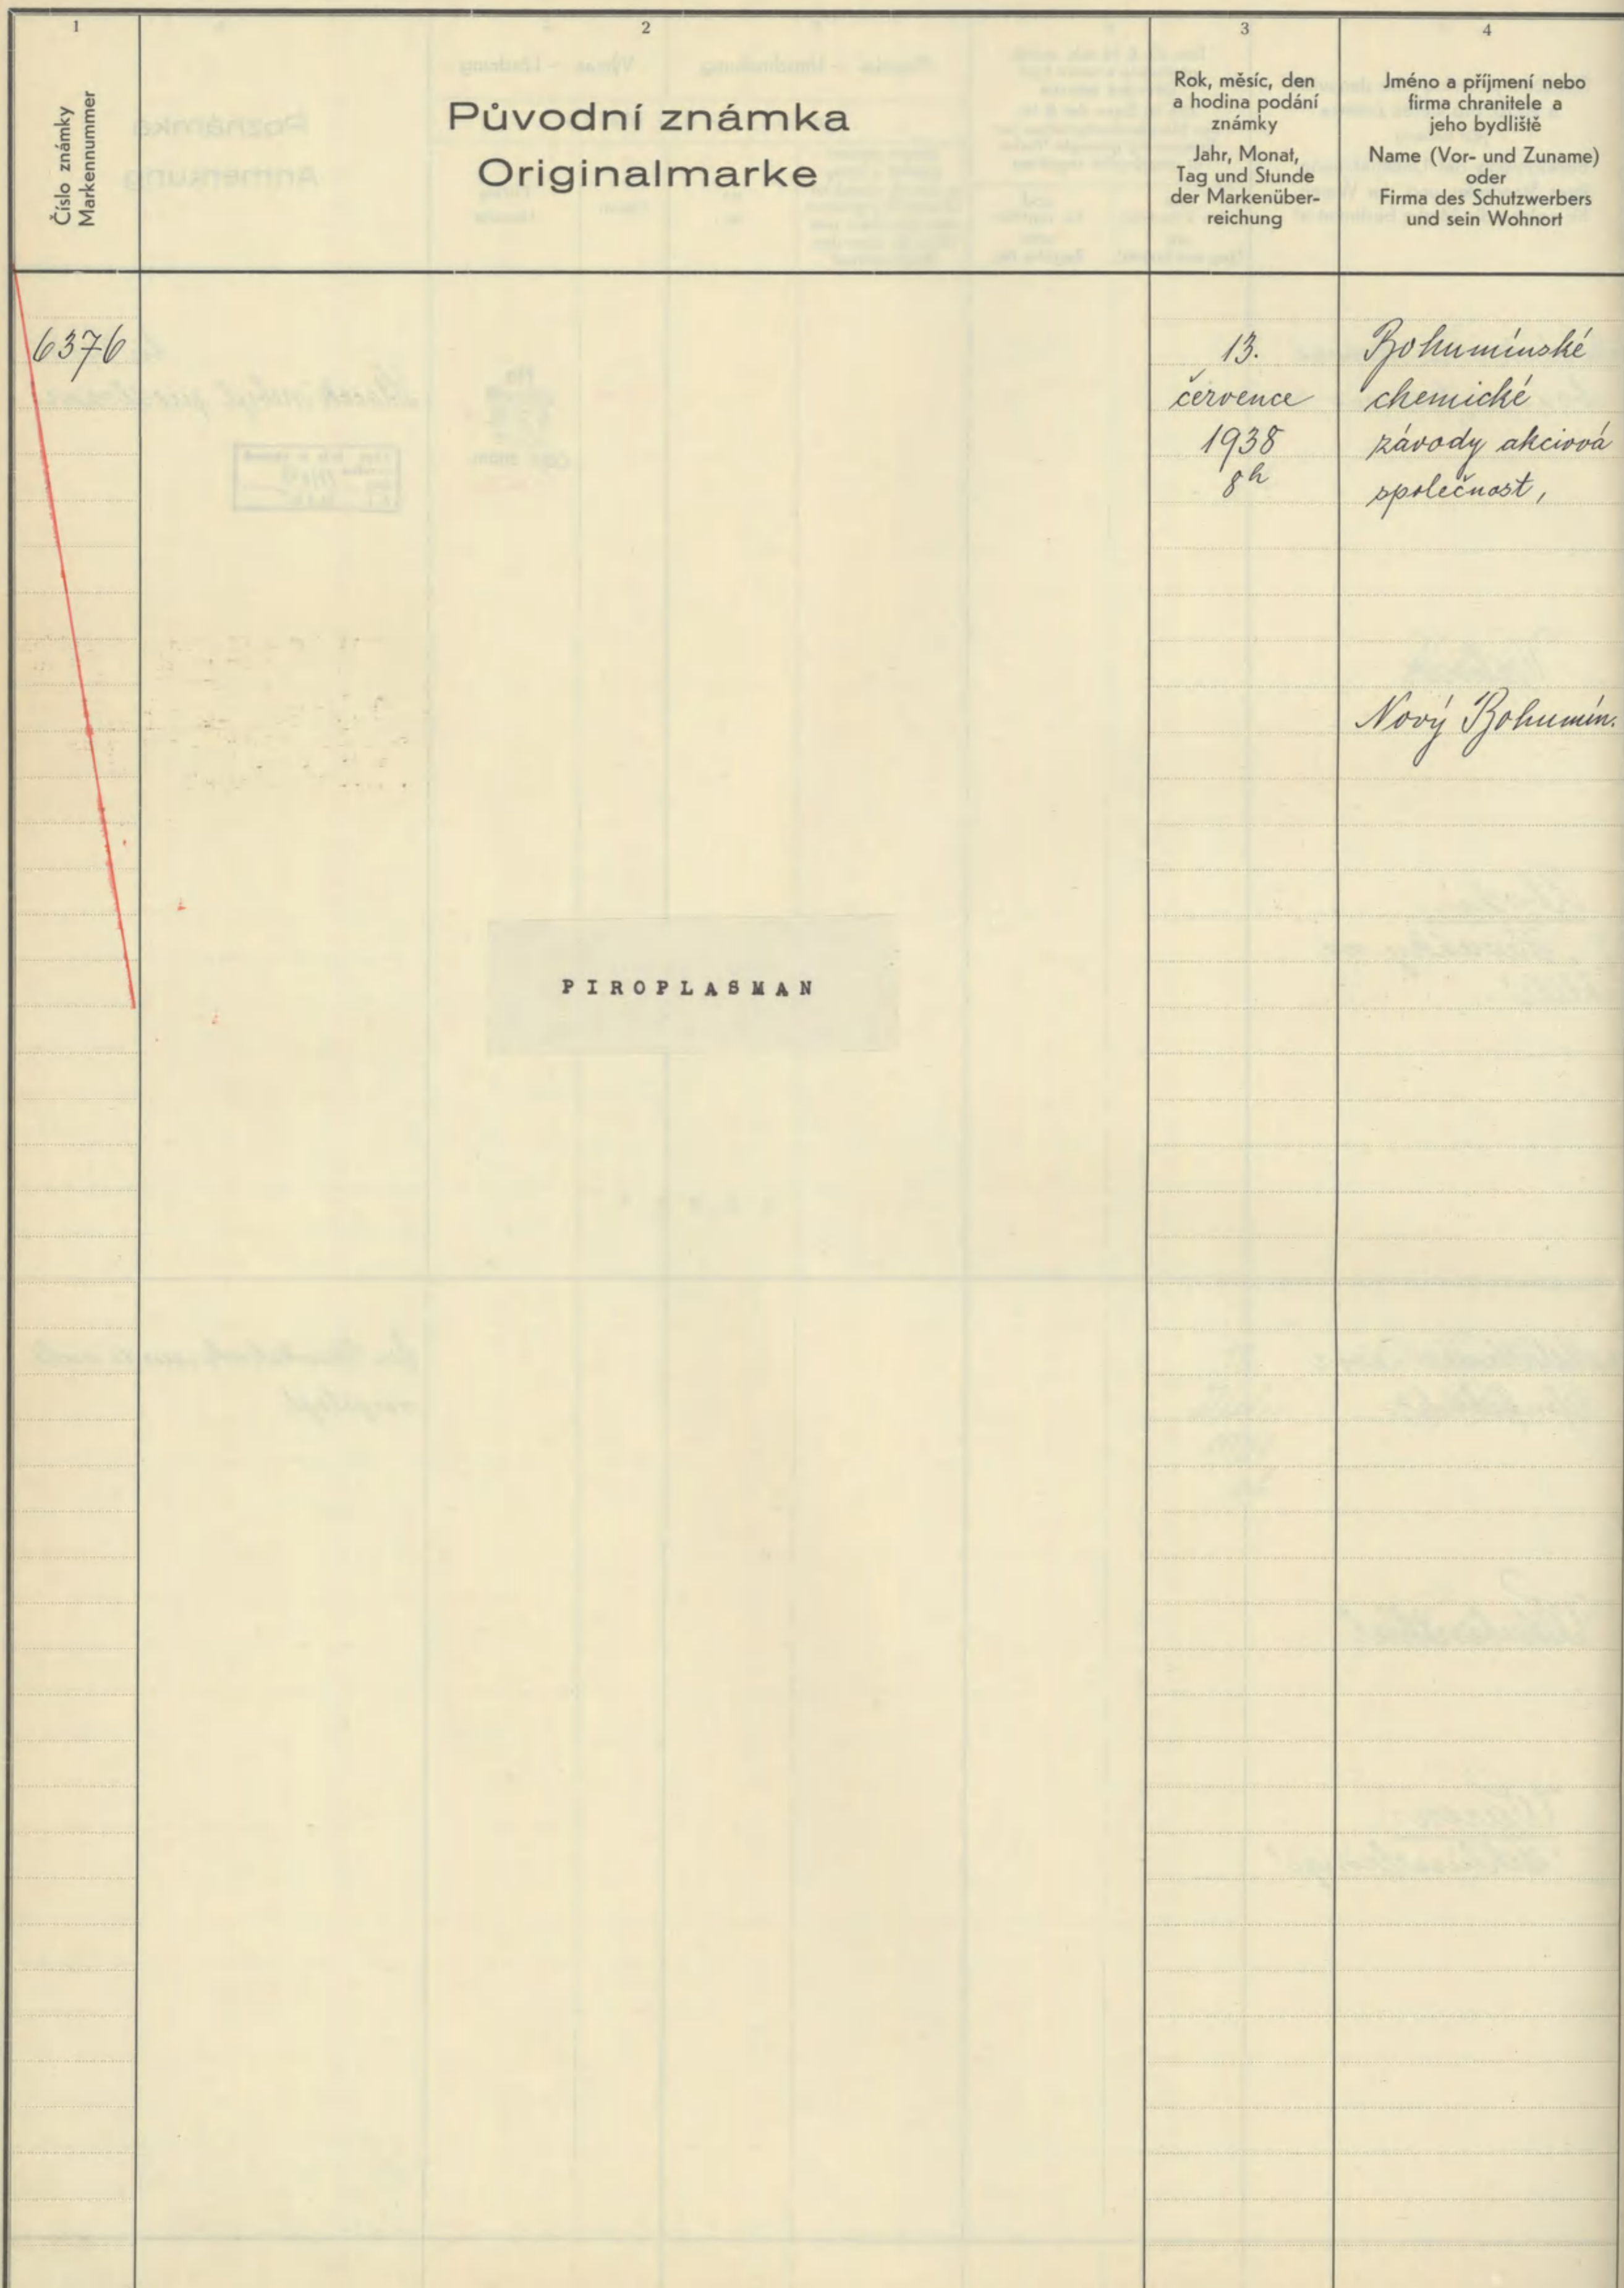 1
Číslo známky
Markennummer
2
Původní známka
Originalmarke
3
Rok, měsíc, den
a hodina podání
známky
Jahr, Monat,
Tag und Stunde
der Markenüber-
reichung
4
Jméno a příjmení nebo
firma chranitele a
jeho bydliště
Name (Vor- und Zuname)
oder
Firma des Schutzwerbers
und sein Wohnort
6376
PIROPLASMAN
13.
července
1938
8h
Bohumínské
chemické
závody akciová
společnost,
Nový Bohumín.